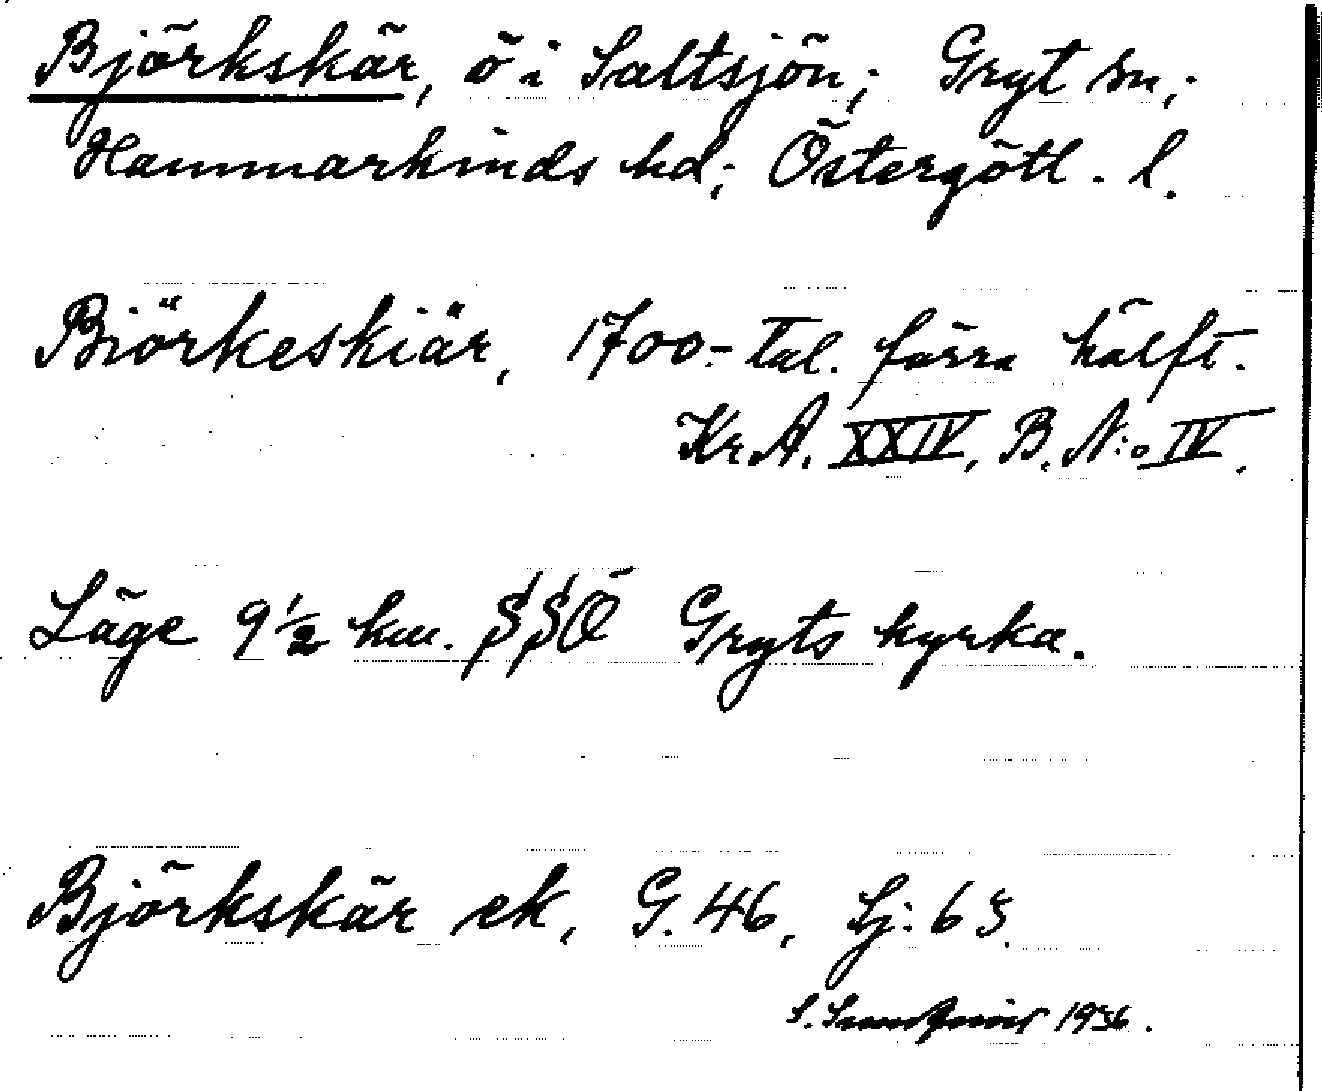 Björkskär, ö i Saltsjön; Gryt sn;
Hammarkinds hd; Östergötl. l.
Biörkeskiär, 1700-tal. förra hälft.
Kr.A. XXIV, B. N:o IV.
Läge 9 1/2 km. SSÖ Gryts kyrka.
Björkskär ek, G. 46, Lj: 65.
S. 1936.